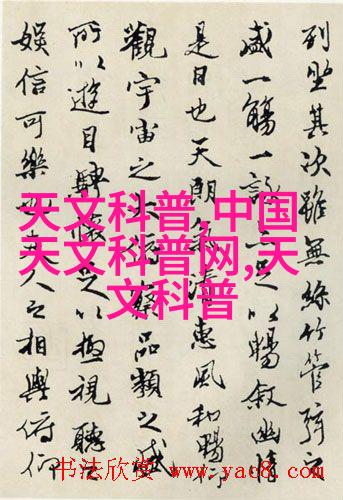 列坐其次雖無絲竹管弦之
盛一觴一詠亦足以暢敘幽情
是日也天朗氣清惠風和暢仰
觀宇宙之大俯察品類之盛
所以遊目騁懷足以極視聽之
娛信可樂也夫人之相與俯仰
天文科普,中国
天文科普网,天
文科普
书法欣赏 www.yac8.com